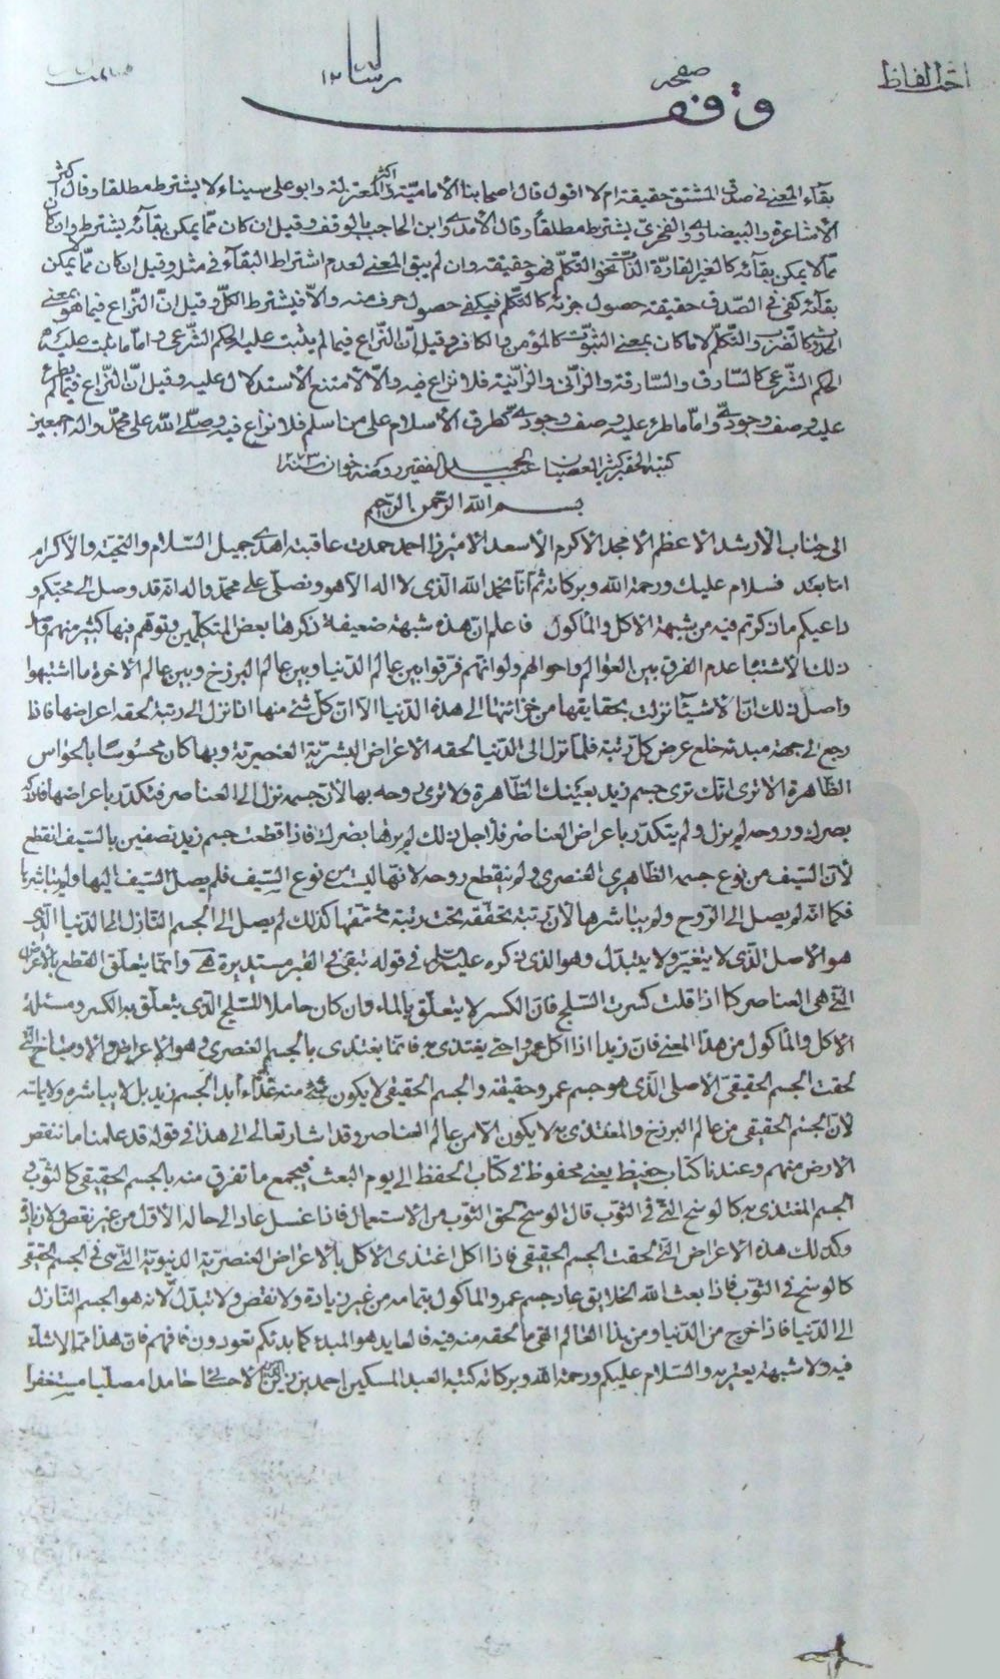 صفحه
رسالة ١٢
وقف
بقآء المعنى فى صدق المشتق حقيقة ام لا اقول قال اصحابنا الأماميّة واكثر المعتزلة وابو على سيناء لا يشترط مطلقا وقال اكثر
الأشاعرة والبيضاوى والفخرى يشترط مطلقاً وقال الأمدى وابن الحاجب بالوقف وقيل ان كان ممّا يمكن بقآئه يشترط وان كان
ممّا لا يمكن بقآئه كالغير القارّة الذّات نحو التكلّم فهو حقيقة وان لم يبق المعنى لعدم اشتراط البقآء فى مثله وقيل ان كان ممّا يمكن
بقآئه كفى فى الصّدق حقيقة حصول جزئه كالتكلّم فيكفى حصول حرف منه والّا فيشترط الكلّ وقيل انّ النّزاع فيما هو بمعنى
الحدوث كالضّرب والتكلّم لا ما كان بمعنى الثبوت كالمؤمن والكافر وقيل انّ النّزاع فيما لم يثبت عليه الحكم الشّرعى وامّا ما ثبت عليه
الحكم الشّرعى كالسّارق والسّارقة والزّانى والزّانية فلا نزاع فيه والّا لامتنع الاستدلال عليه وقيل انّ النّزاع فيما لم يطرء
عليه وصف وجودىّ وامّا ما طرء عليه وصف وجودىّ كطرق الأسلام على من اسلم فلا نزاع فيه وصلّى الله على محمّد واله اجمعين
كتبه الحقير كثير العصيان عبد الحميد الفقير روضه خوان سنة ١٢٧٣
بسم الله الرّحمن الرّحيم
الى جناب الأرشد الأعظم الأمجد الأكرم الأسعد الأميرزا احمد حمدت عاقبته اهدى جميل السّلام والتحيّة والأكرام
امّا بعد فسلام عليك ورحمة الله وبركاته ثم انّا نحمد الله الّذى لا اله الّا هو ونصلّى على محمّد واله انّه قد وصل الى محبّكم و
داعيكم ما ذكرتم فيه من شبهة الأكل والمأكول فاعلم انّ هذه شبهة ضعيفة ذكرها بعض المتكلّمين وتوهّم فيها كثير منهم وقد
ذلك لأشتباه عدم الفرق بين العوالم واحوالهم ولو انّهم فرّقوا بين عالم الدّنيا وبين عالم البرزخ وبين عالم الأخرة ما اشتبهوا
واصل ذلك انّ الأشيآء نزلت بحقايقها من خزائنها الى هذه الدّنيا الّا انّ كلّ شئ منها اذا نزل الى رتبة لحقه اعراضها فاذا
رجع الى جهة مبدئه خلع عرض كلّ رتبة فلمّا نزل الى الدّنيا لحقه الأعراض البشريّة العنصريّة وبها كان محسوسًا بالحواس
الظّاهرة الا ترى انّك ترى جسم زيد بعينك الظّاهرة ولا ترى روحه بها لأنّ جسمه نزل الى العناصر فتكدّر باعراضها فادركه
بصرك وروحه لم ينزل ولم يتكدّر باعراض العناصر فلأجل ذلك لم يرها بصرك فاذا قطعت جسم زيد نصفين بالسّيف انقطع
لأنّ السّيف من نوع جسمه الظّاهرى العنصرى ولم ينقطع روحه لانّها ليست من نوع السّيف فلم يصل السّيف اليها ولم يباشرها
فكما انّه لم يصل الى الرّوح ولم يباشرها لأنّ رتبة تحقّقه تحت رتبة تحقّقها كذلك لم يصل الى الجسم النّازل الى الدّنيا الّذى
هو الأصل الّذى لا يتغيّر ولا يتبدّل وهو الذى ذكره عليه السلام فى قوله تبقى فى القبر مستديرة هى وانّما يتعلّق القطع بالأعراض
الّتى هى العناصر كما اذا قلت كسرت الثّلج فانّ الكسر لا يتعلّق بالماء وان كان حاملا للثّلج الّذى يتعلّق به الكسر ومسئلة
الأكل والمأكول من هذا المعنى فانّ زيدا اذا اكل عمروا حتّى يغتذى به فانّما يغتذى بالجسم العنصرى وهو الأعراض والأوساخ الّتى
لحقت الجسم الحقيقىّ الأصلى الّذى هو جسم عمرو حقيقة والجسم الحقيقى لا يكون شئ منه غذآء ابدا لجسم زيد بل لا يباشره ولا يماسّه
لأنّ الجسم الحقيقى من عالم البرزخ والمغتذى به لا يكون الّا من عالم العناصر وقد اشار تعالى الى هذا فى قوله قد علمنا ما تنقص
الارض منهم وعندنا كتاب حفيظ يعنى محفوظ فى كتاب الحفظ الى يوم البعث فيجمع ما تفرق منه بالجسم الحقيقى كالثوب
الجسم المغتذى به كالوسخ الّتى فى الثّوب قال لوسخ لحق الثّوب من الاستعمال فاذا غسل عاد الى حاله الأوّل من غير نقص ولا زيادة
وكذلك هذه الأعراض الّتى لحقت الجسم الحقيقى فاذا اكل اغتذى الأكل بالأعراض العنصريّة الدنيويّة الّتى هى فى الجسم الحقيقى
كالوسخ فى الثّوب فاذا بعث الله الخلايق عاد جسم عمرو المأكول بتمامه من غير زيادة ولا نقص ولا تبدّل لأنّه هو الجسم النّازل
الى الدّنيا فاذا خرج من الدّنيا ومن هذا العالم القى ما لحقه منه فيه فالعايد هو المبدء كما بدئكم تعودون فافهم فانّ هذا ممّا لا شكّ
فيه ولا شبهة يعتريه والسّلام عليكم ورحمة الله وبركاته كتبه العبد المسكين احمد بن زين الدين الأحسائى حامدا مصلّيا مستغفرا